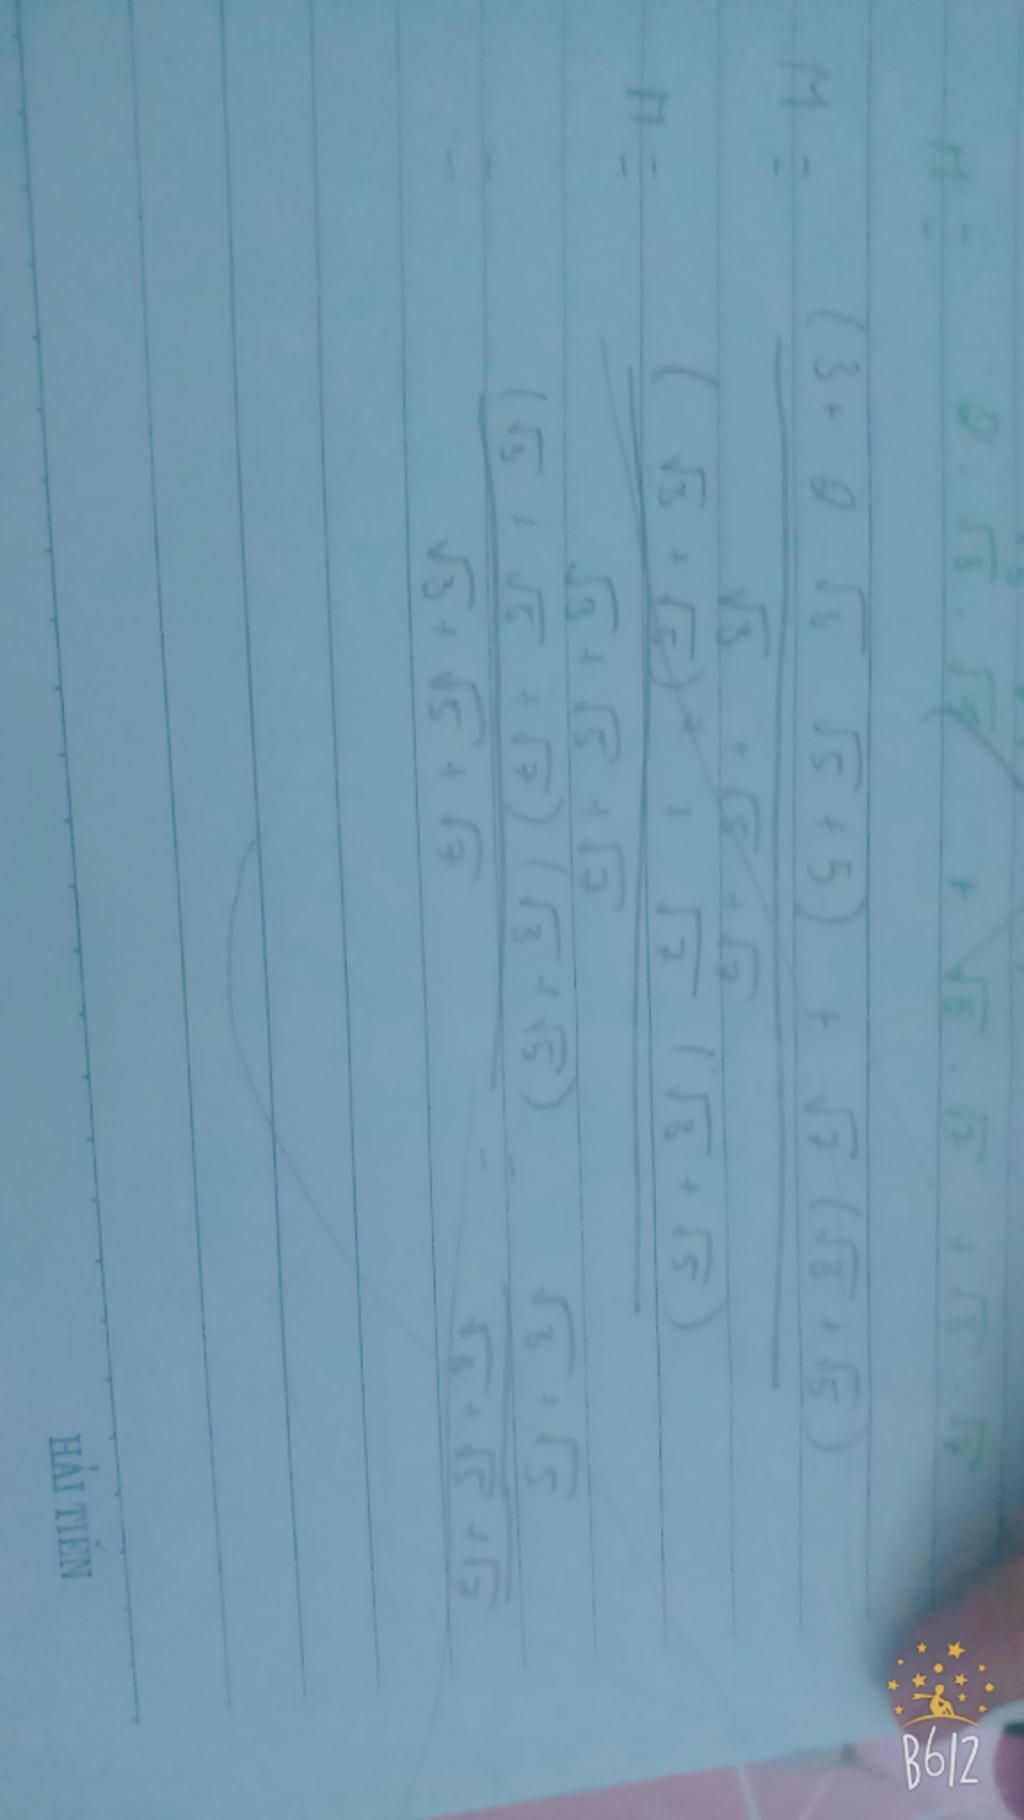 M = 2 . √3 . √4 + √5 . √7 + √3 . √7
M = (3 + 2 . √3 . √5 + 5) + √7 (√3 + √5)
√3 + √5 + √7
M = (√3 + √5) + √7 (√3 + √5)
√3 + √5 + √7
= (√3 + √5 + √7) (√3 + √5) = √3 + √5
√3 + √5 + √7 √3 + √5 + √7
HẢI TIẾN
B612